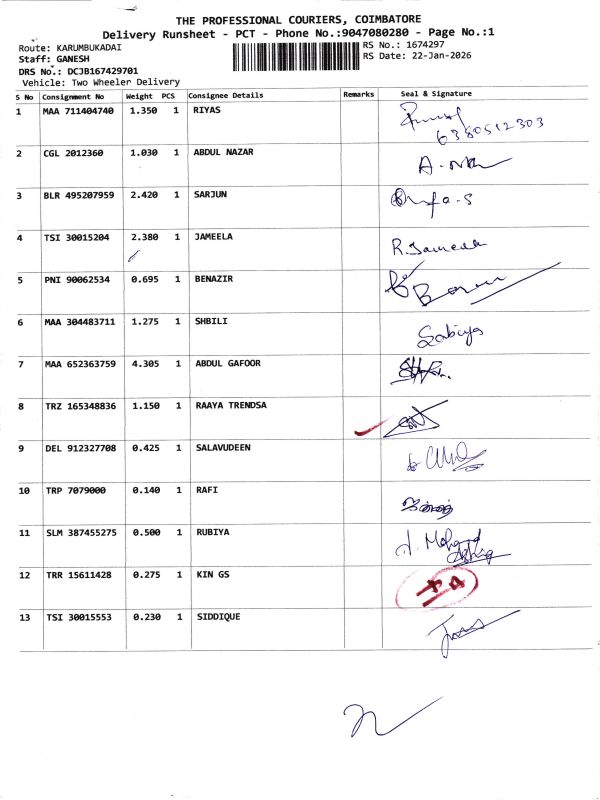 THE PROFESSIONAL COURIERS, COIMBATORE
Delivery Runsheet - PCT - Phone No.:9047080280 - Page No.:1
Route: KARUMBUKADAI
Staff: GANESH
DRS No.: DCJB167429701
Vehicle: Two Wheeler Delivery
RS No.: 1674297
RS Date: 22-Jan-2026
S No Consignment No Weight PCS Consignee Details Remarks Seal & Signature
1 MAA 711404740 1.350 1 RIYAS
6380512303
2 CGL 2012360 1.030 1 ABDUL NAZAR
3 BLR 495207959 2.420 1 SARJUN
4 TSI 30015204 2.380 1 JAMEELA R.Jameela
5 PNI 90062534 0.695 1 BENAZIR
6 MAA 304483711 1.275 1 SHBILI Sabiya
7 MAA 652363759 4.305 1 ABDUL GAFOOR
8 TRZ 165348836 1.150 1 RAAYA TRENDSA
9 DEL 912327708 0.425 1 SALAVUDEEN
10 TRP 7079000 0.140 1 RAFI
11 SLM 387455275 0.500 1 RUBIYA
12 TRR 15611428 0.275 1 KIN GS
13 TSI 30015553 0.230 1 SIDDIQUE